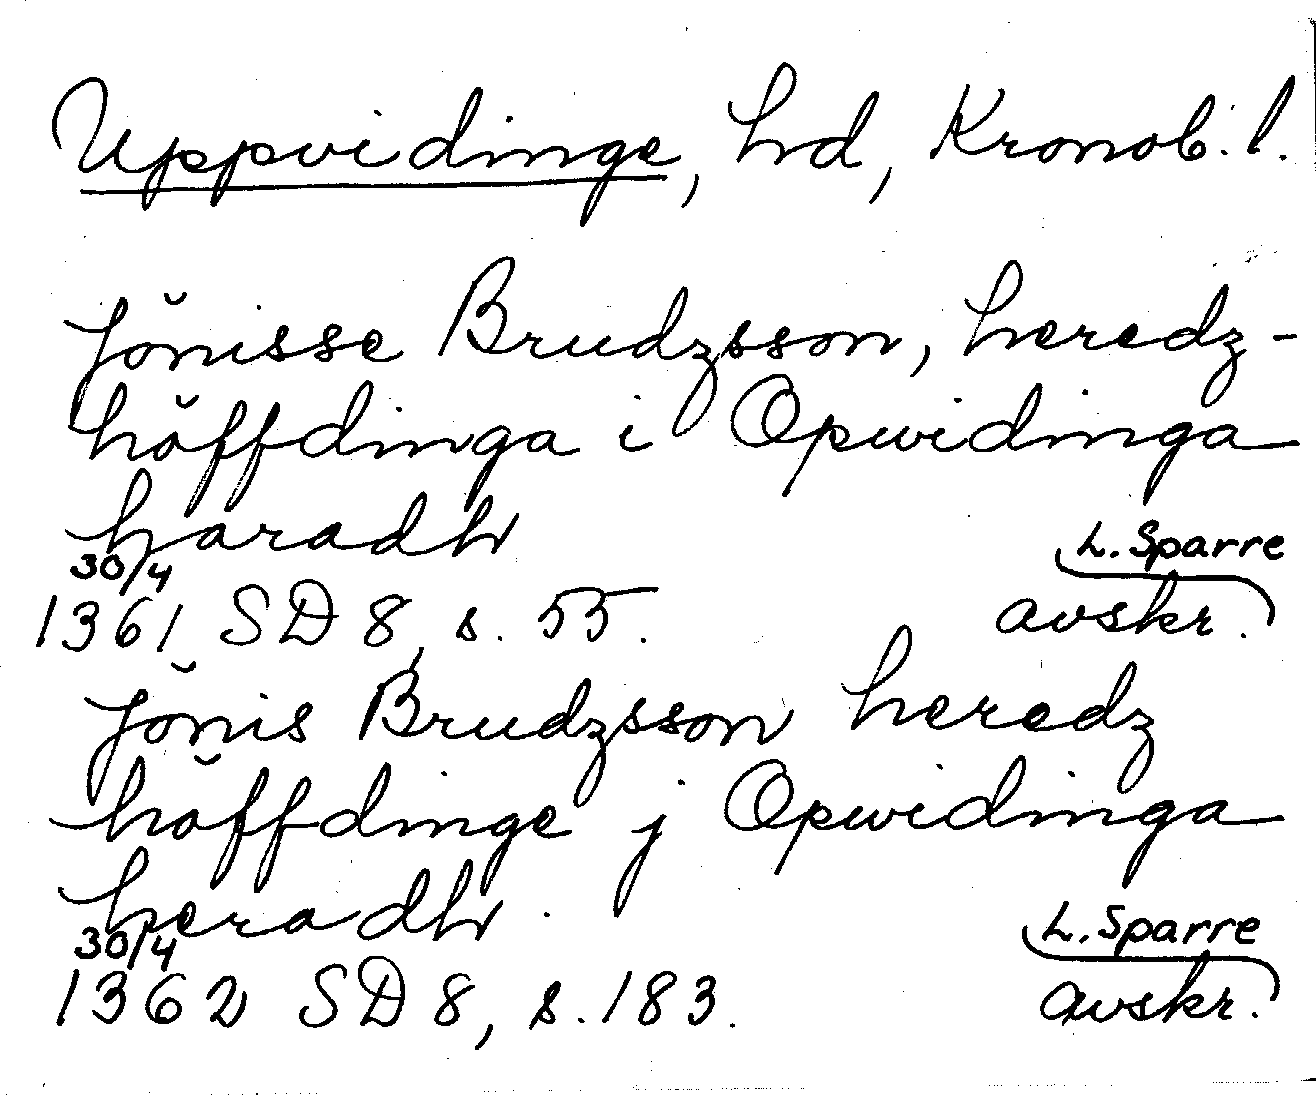 Uppvidinge, hd, Kronob. l.
Jŏnisse Brudzsson, heredz-
hŏffdinga i Opwidinga
haradh
L. Sparre
30/4
1361 SD 8, s. 55. avskr.
Jŏnis Brudzsson heredz
hŏffdinge j Opwidinga
heradh.
L. Sparre
30/4
1362 SD 8, s. 183. avskr.